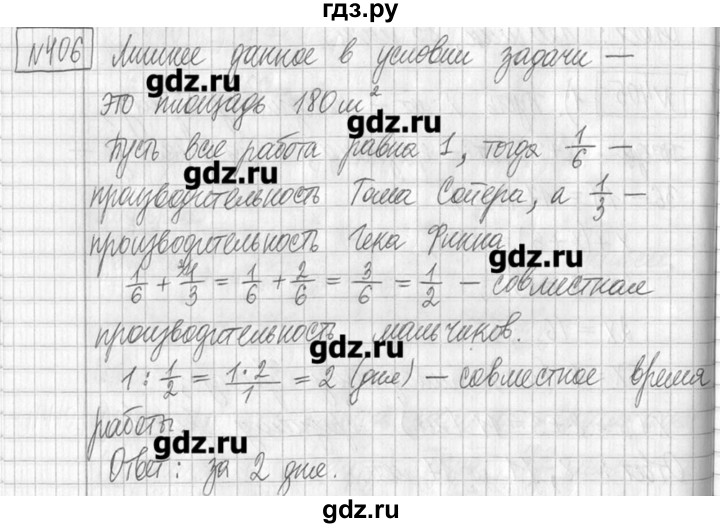 гдз.ру
№406 Лишнее данное в условии задачи —
это площадь 180 м²
gdz.ru
gdz.ru
Пусть вся работа равна 1, тогда 1/6 —
gdz.ru
производительность Тома Сойера, а 1/3 —
производительность Гека Финна
gdz.ru
1/6 + ²⁾1/3 = 1/6 + 2/6 = 3/6 = 1/2 — совместная
производительность мальчиков.
gdz.ru
1 : 1/2 = 1·2/1 = 2 (дня) — совместное время
работы
gdz.ru
Ответ: за 2 дня.
gdz.ru